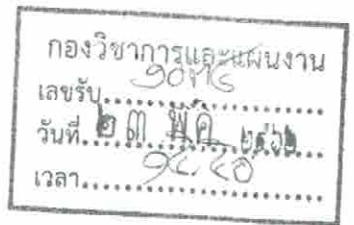 กองวิชาการและแผนงาน
เลขรับ
วันที่ ๒๓ พ.ค. ๒๕๖๒
เวลา ๑๔.๔๐